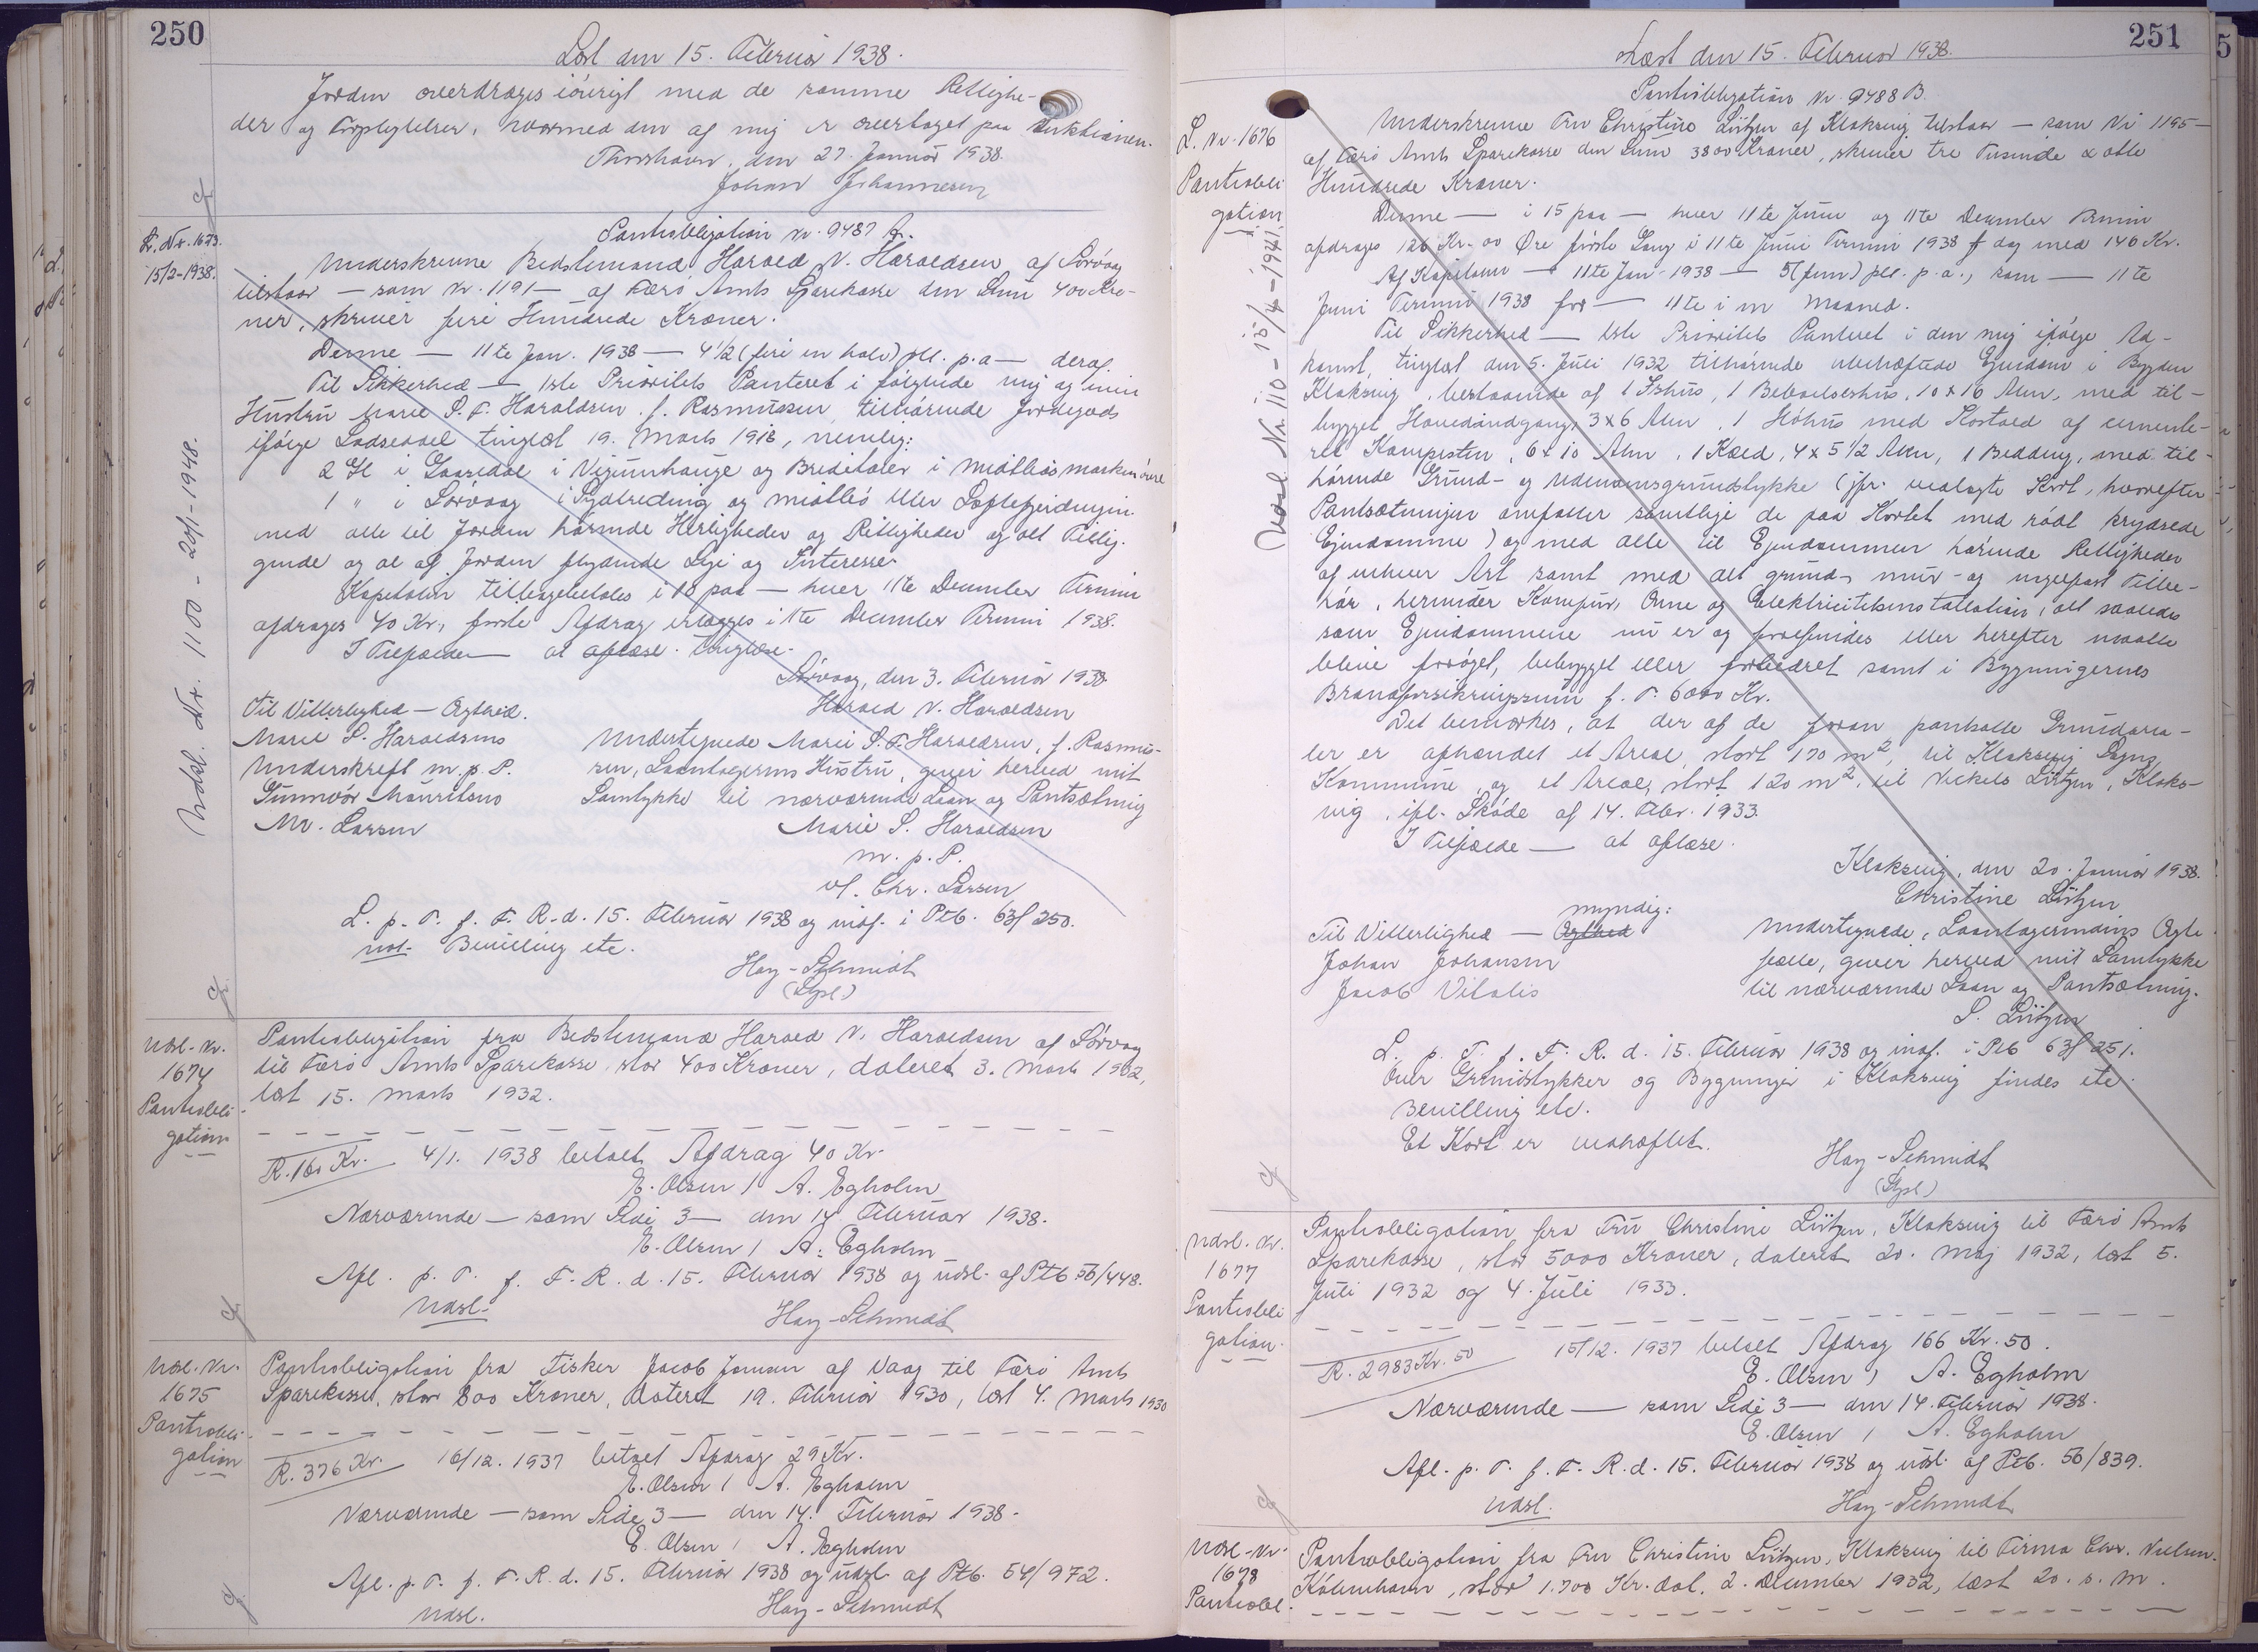 250
Læst den 15. Februar 1938.
Jorden overdrages iøvrigt med de samme Rettighe-
der og Forpligtelser, hvormed den af mig er overtaget paa Auktionen.
Thorshavn, den 27. Januar 1938.
Johan Johannesen
L. Nr. 1673.
15/2-1938.
Udsl. Nr. 1100 - 20/1-1948.
Pantobligation Nr. 9487 A.
Underskrevne Bedstemand Harald N. Haraldsen af Sørvaag
tilstaar — som Nr. 1191 — af Færø Amts Sparekasse den Sum 400 Kro-
ner, skriver fire Hundrede Kroner.
Denne — 11te Jan. 1938 — 4 1/2 (fire en halv) pCt. p.a — deraf.
Til Sikkerhed — 1ste Prioritets Panteret i følgende mig og min
Hustru Marie S. F. Haraldsen f. Rasmussen tilhørende Jordegods
ifølge Lodseddel tinglæst 19. Marts 1918, nemlig:
2 Gl i Gaasedal i og i
1 " i Sørvaag i og midtlió eller
med alle til Jorden hørende Herligheder og Rettigheder og alt Tillig-
gende og al af Jorden flydende Leje og Interesse.
Kapitalen tilbagebetales i 10 paa — hver 11te December Termin
afdrages 40 Kr., første Afdrag erlægges i 11te December Termin 1938.
I Tilfælde — at aflæse. tinglæse.
Sørvaag, den 3. Februar 1938
Harald N. Haraldsen
Til Vitterlighed — Ægthed.
Marie S. Haraldsens
Underskrift m. p. P.
Gunnvór Mauritsens
M. Larsen
Undertegnede Marie S. F. Haraldsen, f. Rasmus-
sen, Laantagerens Hustru, giver herved mit
Samtykke til nærværende Laan og Pantsætning
Marie S. Haraldsen
m. p. P.
v/. Chr. Larsen
L. p. T. f. F. R. d. 15. Februar 1938 og indf. i Ptb. 63/250.
Bevilling etc.
Hay-Schmidt
(Stpl)
Udsl. Nr.
1674
Pantobli-
gation
Pantobligation fra Bedstemand Harald N. Haraldsen af Sørvaag
til Færø Amts Sparekasse, stor 400 Kroner, dateret 3. Marts 1932,
læst 15. Marts 1932.
R. 160 Kr. 4/1. 1938 betalt Afdrag 40 Kr.
E. Olsen / A. Egholm
Nærværende — som Side 3 — den 14 Februar 1938.
E. Olsen / A. Egholm
Afl. p. T. f. F. R. d. 15. Februar 1938 og udsl. af Ptb 56/448.
Udsl.
Hay-Schmidt
Udsl. Nr.
1675
Pantobli-
gation
Pantobligation fra Fisker Jacob Jensen af Vaag til Færø Amts
Sparekasse, stor 800 Kroner, dateret 19. Februar 1930, læst 4. Marts 1930
R. 376 Kr. 16/12. 1937 betalt Afdrag 29 Kr.
E. Olsen / A. Egholm
Nærværende — som Side 3 — den 14. Februar 1938.
E. Olsen / A. Egholm
Afl. p. T. f. F. R. d. 15. Februar 1938 og udsl. af Ptb. 54/972.
Udsl.
Hay-Schmidt
251
Læst den 15. Februar 1938.
L. Nr. 1676
Pantobli-
gation
Udsl. Nr. 110 - 15/4-1941.
Pantobligation Nr. 9488 B.
Underskrevne Fru Christine Lützen af Klaksvig tilstaar — som Nr 1195 —
af Færø Amts Sparekasse den Sum 3800 Kroner, skriver tre Tusinde & otte
Hundrede Kroner.
Denne — i 15 paa — hver 11te Juni og 11te December Termin
afdrages 126 Kr. 00 Øre første Gang i 11te Juni Termin 1938 dog med 146 Kr.
Af Kapitalen — 11te Jan. 1938 — 5 (fem) pCt. p.a., som — 11te
Juni Termin 1938 for — 11te i m Maaned.
Til Sikkerhed — 1ste Prioritets Panteret i den mig ifølge Ad-
komst, tinglæst den 5. Juli 1932 tilhørende ubehæftede Ejendom i Bygden
Klaksvig, bestaaende af 1 Ishus, 1 Beboelseshus, 10 x 16 Alen, med til-
bygget Hovedindgang, 3 x 6 Alen, 1 Høhus med Kostald af cemente-
ret Kampesten, 6 x 10 Alen, 1 Kæld, 4 x 5 1/2 Alen, 1 Bedding, med til-
hørende Grund- og Udenomsgrundstykke (jfr. vedlagte Kort, hvorefter
Pantsætningen omfatter samtlige de paa Kortet med rødt krydsede
Ejendomme) og med alle til Ejendommen hørende Rettigheder
af enhver Art samt med alt grund-, mur- og nagelfast Tilbe-
hør, herunder Komfur, Ovne og Elektricitetsinstallation, alt saaledes
som Ejendommene nu er og forefindes eller herefter maatte
blive forøget, bebygget eller forbedret samt i Bygningernes
Brandforsikringssum f. T. 6000 Kr.
Det bemærkes, at der af de foran pantsatte Grundarea-
ler er afhændet et Areal, stort 170 m², til Klaksvig Sogns
Kommune, og et Areal, stort 120 m², til Nickels Lützen, Klaks-
vig, ifl. Skøde af 14. Febr. 1933.
I Tilfælde — at aflæse.
Klaksvig, den 20. Januar 1938.
Christine Lützen
myndig:
Til Vitterlighed — Ægthed
Johan Johansen
Jacob Vitalis
Undertegnede, Laantagerindens Ægte-
fælle, giver herved mit Samtykke
til nærværende Laan og Pantsætning.
S. Lützen
L. p. T. f. F. R. d. 15. Februar 1938 og indf. i Ptb 63/251.
Over Grundstykker og Bygninger i Klaksvig findes etc.
Bevilling etc.
Et Kort er vedhæftet.
Hay-Schmidt
(Stpl)
Udsl. Nr.
1677
Pantobli-
gation.
Pantobligation fra Fru Christine Lützen, Klaksvig til Færø Amts
Sparekasse, stor 5000 Kroner, dateret 20. Maj 1932, læst 5.
Juli 1932 og 4. Juli 1933.
R. 2983 Kr. 50 15/12. 1937 betalt Afdrag 166 Kr. 50.
E. Olsen / A. Egholm
Nærværende — som Side 3 — den 14. Februar 1938.
E. Olsen / A. Egholm
Afl. p. T. f. F. R. d. 15. Februar 1938 og udsl. af Ptb. 56/839.
Udsl.
Hay-Schmidt
Udsl. Nr.
1678
Pantobl.
Pantobligation fra Fru Christine Lützen, Klaksvig til Firma Chr. Nielsen.
København, stor 1.700 Kr. dat. 2. December 1932, læst 20. s. M.